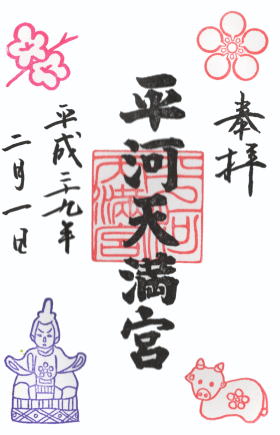 奉拝
平河天満宮
平成二十九年
二月一日